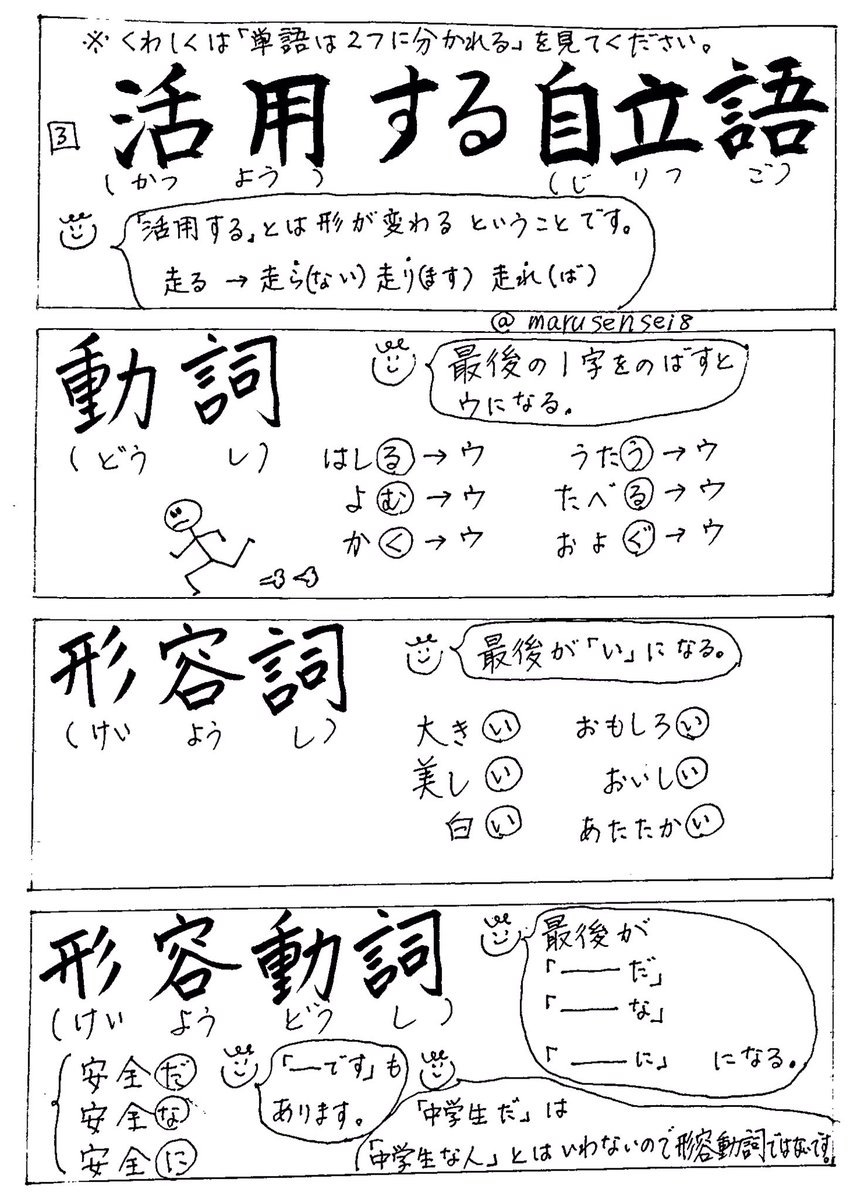 ※くわしくは「単語は2つに分かれる」を見てください。
3 活用する自立語
(かつよう) (じりつご)
「活用する」とは形が変わるということです。
走る→走ら(ない)走り(ます)走れ(ば)
@marusensei8
動詞
(どうし)
最後の1字をのばすと
ウになる。
はしる→ウ うたう→ウ
よむ→ウ たべる→ウ
かく→ウ およぐ→ウ
形容詞
(けいようし)
最後が「い」になる。
大きい おもしろい
美しい おいしい
白い あたたかい
形容動詞
(けいようどうし)
最後が
「――だ」
「――な」
「――に」になる。
安全だ
安全な
安全に
「―です」も
あります。
「中学生だ」は
「中学生な人」とはいわないので形容動詞ではないです。